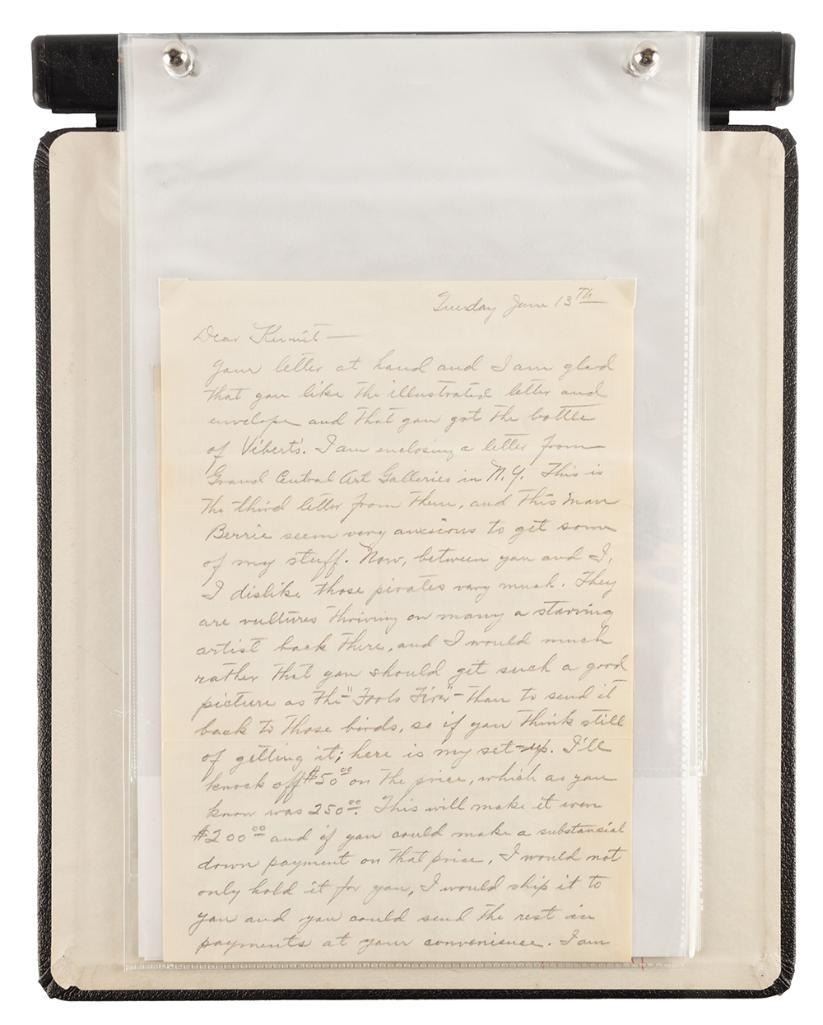 Tuesday June 13TH
Dear Kermit—
Your letter at hand and I am glad
that you like the illustrated letter and
envelope and that you got the bottle
of Viberts. I am enclosing a letter from
Grand Central Art Galleries in N.Y. This is
the third letter from them, and this man
Berrie seem very anxious to get some
of my stuff. Now, between you and I,
I dislike those pirates very much. They
are vultures thriving on many a starving
artist back there, and I would much
rather that you should get such a good
picture as the "Fools Fire" than to send it
back to those birds, so if you think still
of getting it; here is my set-up. I'll
knock off $50.00 on the price, which as you
know was 250.00. This will make it even
$200.00 and if you could make a substancial
down payment on that price, I would not
only hold it for you, I would ship it to
you and you could send the rest in
payments at your convenience. I am